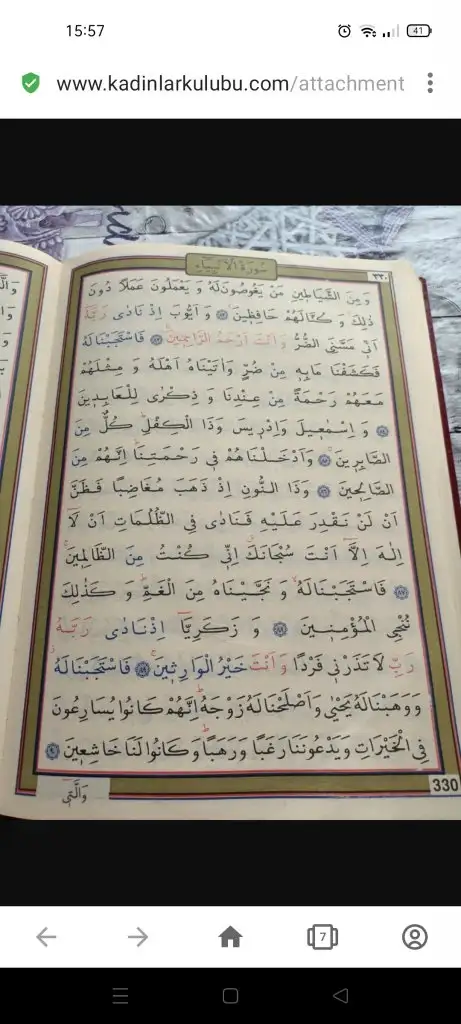 15:57
41
www.kadinlarkulubu.com/attachment
سُورَةُ الْاَنْبِيَاءِ
٣٣٠
وَمِنَ الشَّيَاطِينِ مَنْ يَغُوصُونَ لَهُ وَيَعْمَلُونَ عَمَلًا دُونَ
ذٰلِكَ وَكُنَّا لَهُمْ حَافِظِينَ ﴿٨٢﴾ وَاَيُّوبَ اِذْ نَادٰى رَبَّهُ
اَنِّى مَسَّنِىَ الضُّرُّ وَاَنْتَ اَرْحَمُ الرَّاحِمِينَ ﴿٨٣﴾ فَاسْتَجَبْنَا لَهُ
فَكَشَفْنَا مَا بِهِ مِنْ ضُرٍّ وَاٰتَيْنَاهُ اَهْلَهُ وَمِثْلَهُمْ
مَعَهُمْ رَحْمَةً مِنْ عِنْدِنَا وَذِكْرٰى لِلْعَابِدِينَ
﴿٨٤﴾ وَاِسْمٰعِيلَ وَاِدْرِيسَ وَذَا الْكِفْلِ كُلٌّ مِنَ
الصَّابِرِينَ ﴿٨٥﴾ وَاَدْخَلْنَاهُمْ فِى رَحْمَتِنَا اِنَّهُمْ مِنَ
الصَّالِحِينَ ﴿٨٦﴾ وَذَا النُّونِ اِذْ ذَهَبَ مُغَاضِبًا فَظَنَّ
اَنْ لَنْ نَقْدِرَ عَلَيْهِ فَنَادٰى فِى الظُّلُمَاتِ اَنْ لَا
اِلٰهَ اِلَّا اَنْتَ سُبْحَانَكَ اِنِّى كُنْتُ مِنَ الظَّالِمِينَ
﴿٨٧﴾ فَاسْتَجَبْنَا لَهُ وَنَجَّيْنَاهُ مِنَ الْغَمِّ وَكَذٰلِكَ
نُنْجِى الْمُؤْمِنِينَ ﴿٨٨﴾ وَزَكَرِيَّا اِذْ نَادٰى رَبَّهُ
رَبِّ لَا تَذَرْنِى فَرْدًا وَاَنْتَ خَيْرُ الْوَارِثِينَ ﴿٨٩﴾ فَاسْتَجَبْنَا لَهُ
وَوَهَبْنَا لَهُ يَحْيٰى وَاَصْلَحْنَا لَهُ زَوْجَهُ اِنَّهُمْ كَانُوا يُسَارِعُونَ
فِى الْخَيْرَاتِ وَيَدْعُونَنَا رَغَبًا وَرَهَبًا وَكَانُوا لَنَا خَاشِعِينَ ﴿٩٠﴾
330
وَالَّتِى
7